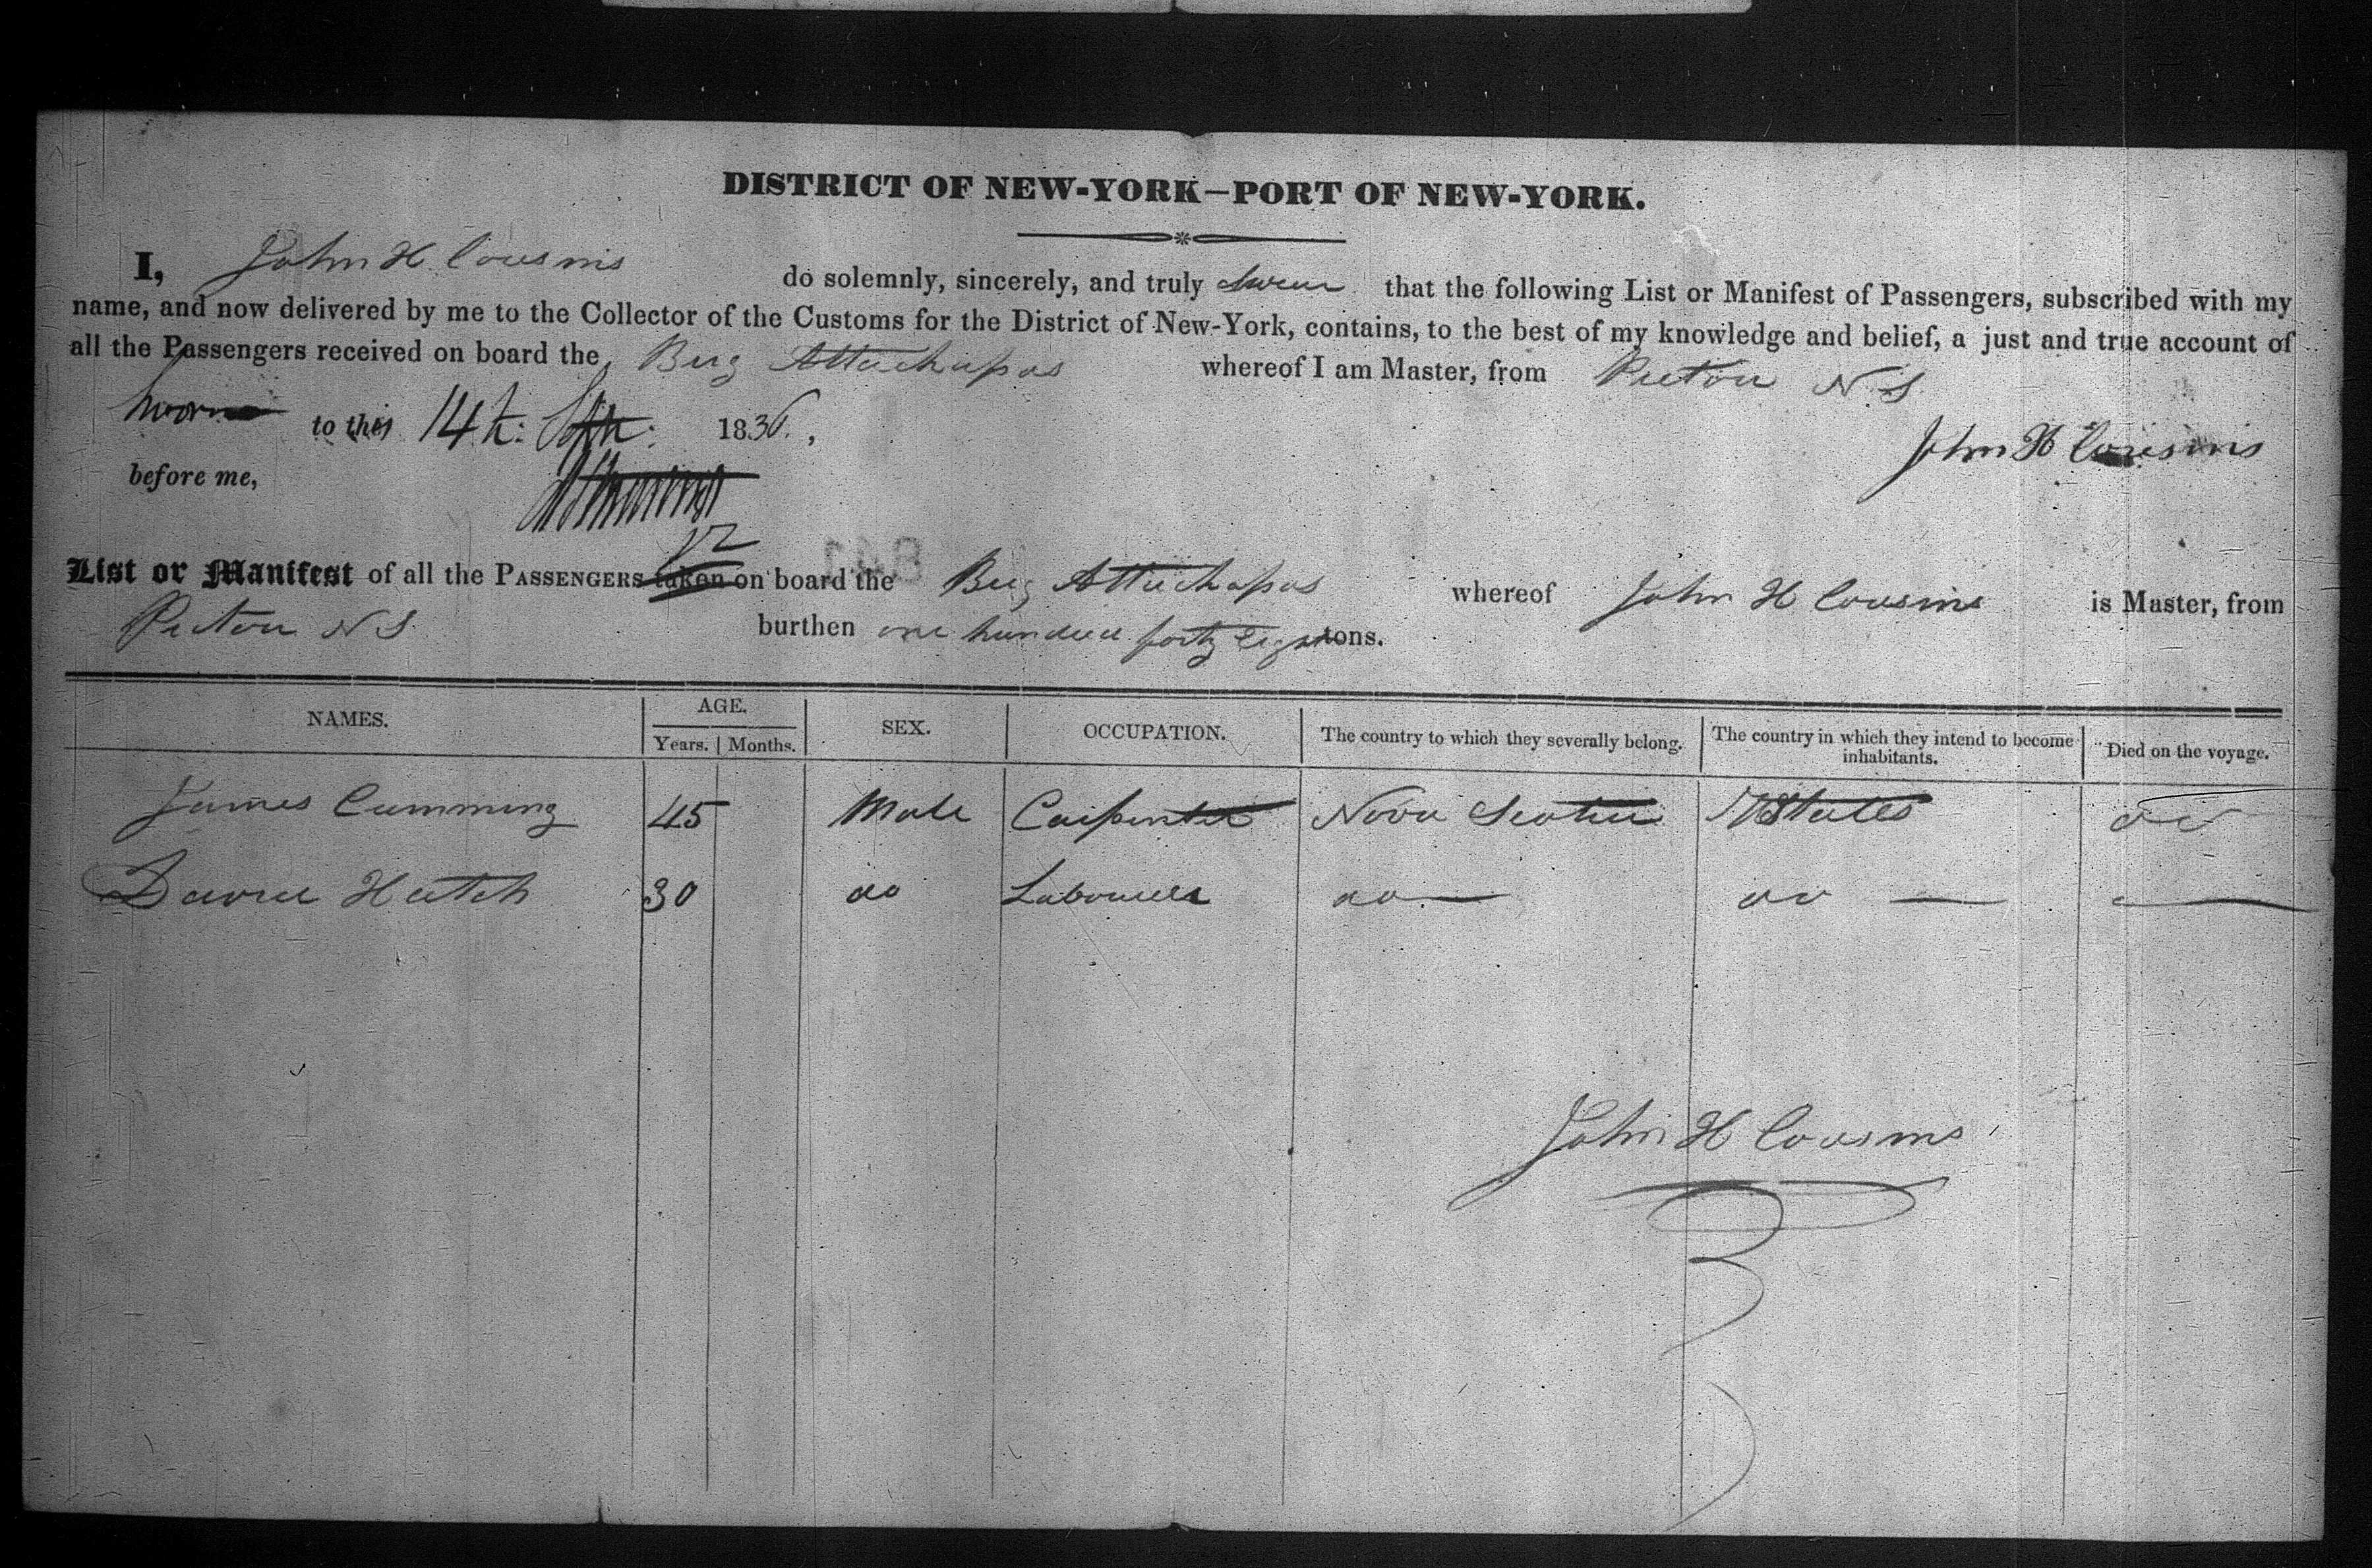 DISTRICT OF NEW-YORK—PORT OF NEW-YORK.
I, John H Cousins do solemnly, sincerely, and truly swear that the following List or Manifest of Passengers, subscribed with my
name, and now delivered by me to the Collector of the Customs for the District of New-York, contains, to the best of my knowledge and belief, a just and true account of
all the Passengers received on board the Brig Attachapas whereof I am Master, from Picton N S
Sworn to this 14th. Sept. 1836.
John H Cousins
before me,
List or Manifest of all the PASSENGERS taken on board the Brig Attachapas whereof John H Cousins is Master, from
Picton N S burthen one hundred forty eight tons.
NAMES. AGE. SEX. OCCUPATION. The country to which they severally belong. The country in which they intend to become inhabitants. Died on the voyage.
Years. Months.
James Cumming 45 Male Carpenter Nova Scotia U States
Hatch 30 do Labourer do — do —
John H Cousins